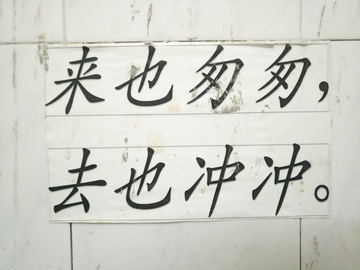 来也匆匆，
去也冲冲。